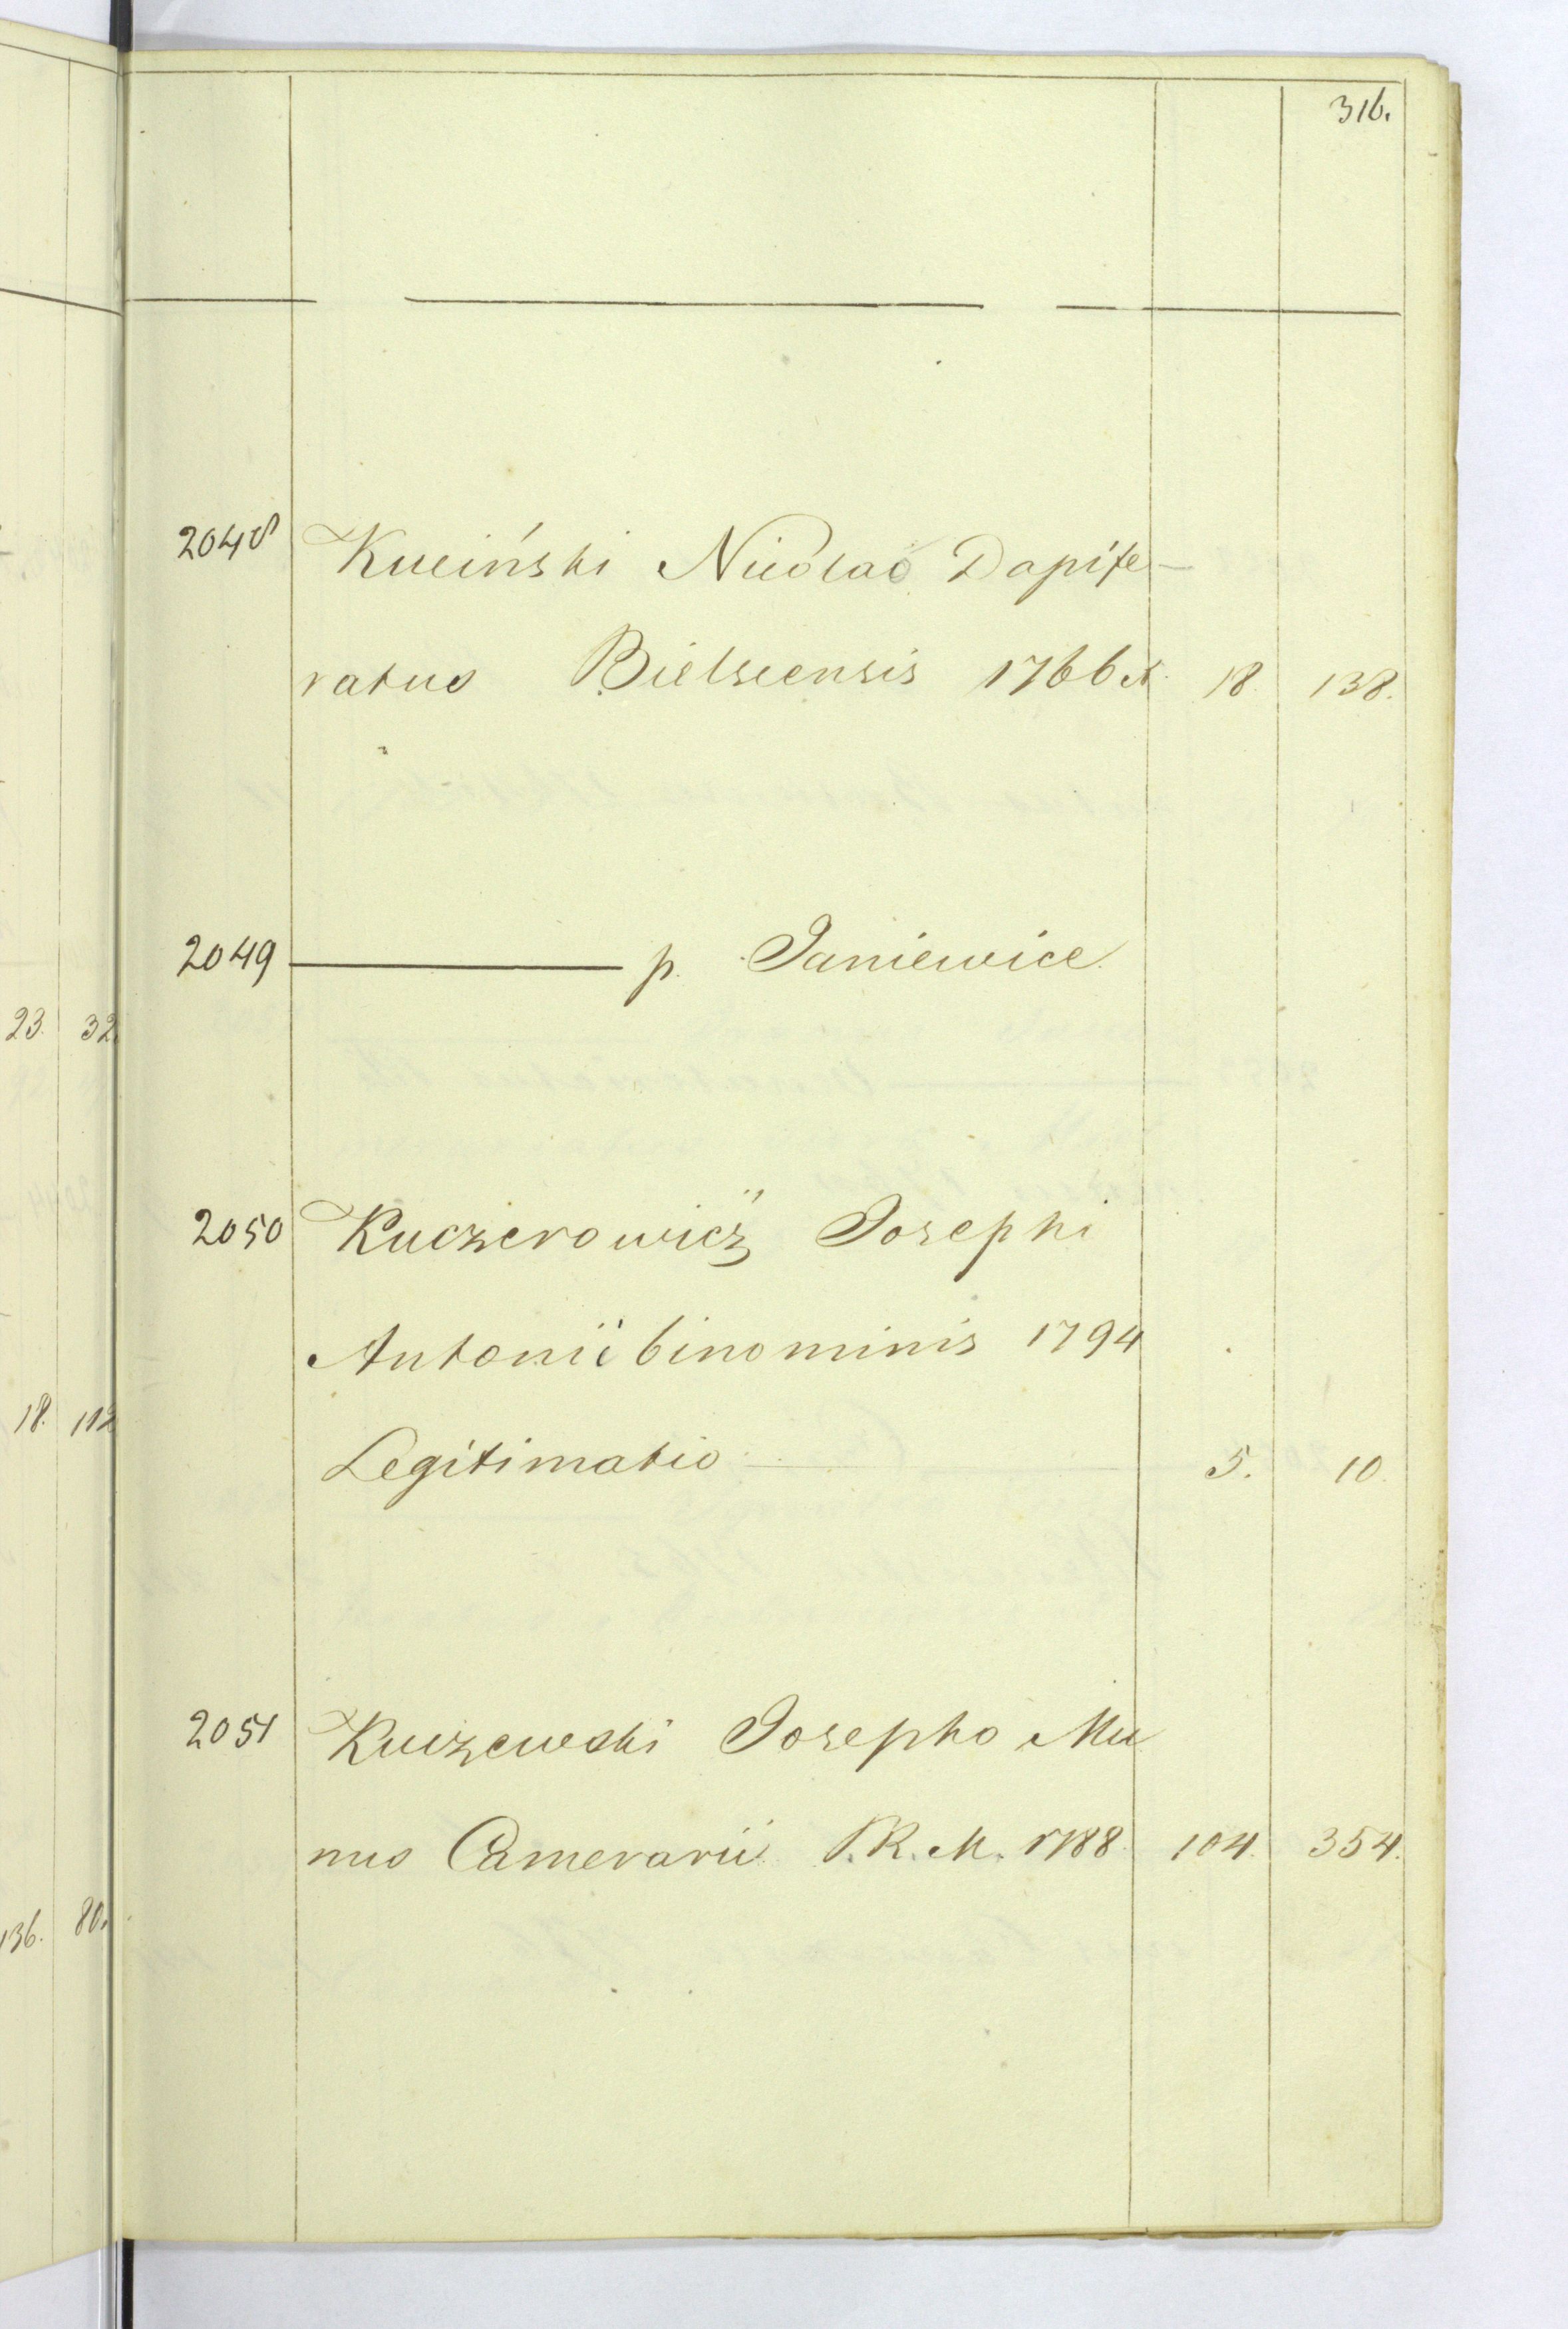 316.
2048 Kuciński Nicolao Dapife-
ratus Bielscensis 1766 18. 138.
2049 ——— p. Janiewice.
23. 32.
2050 Kuczerowicz Josephi
Antonii binominis 1794
18. 112
Legitimatio — 5. 10.
2051 Kuczewski Josepho Mu
nus Camerarii S.R.M. 1788. 104. 354.
136. 80.